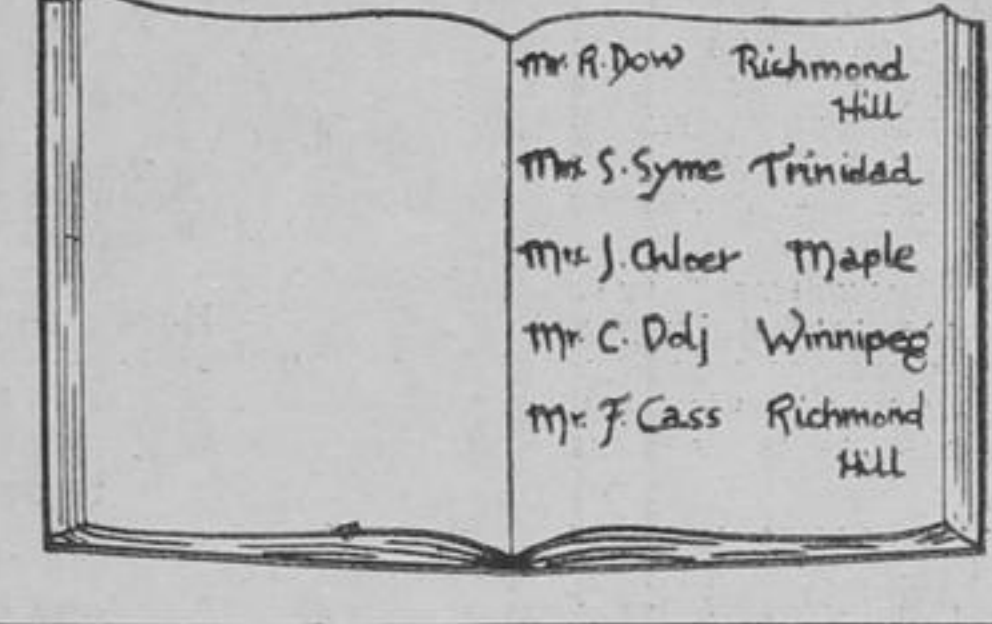 Mr. R. Dow Richmond
Hill
Mrs. S. Syme Trinidad
Mrs. J. Maple
Mr. C. Dolj Winnipeg
Mr. F. Cass Richmond
Hill